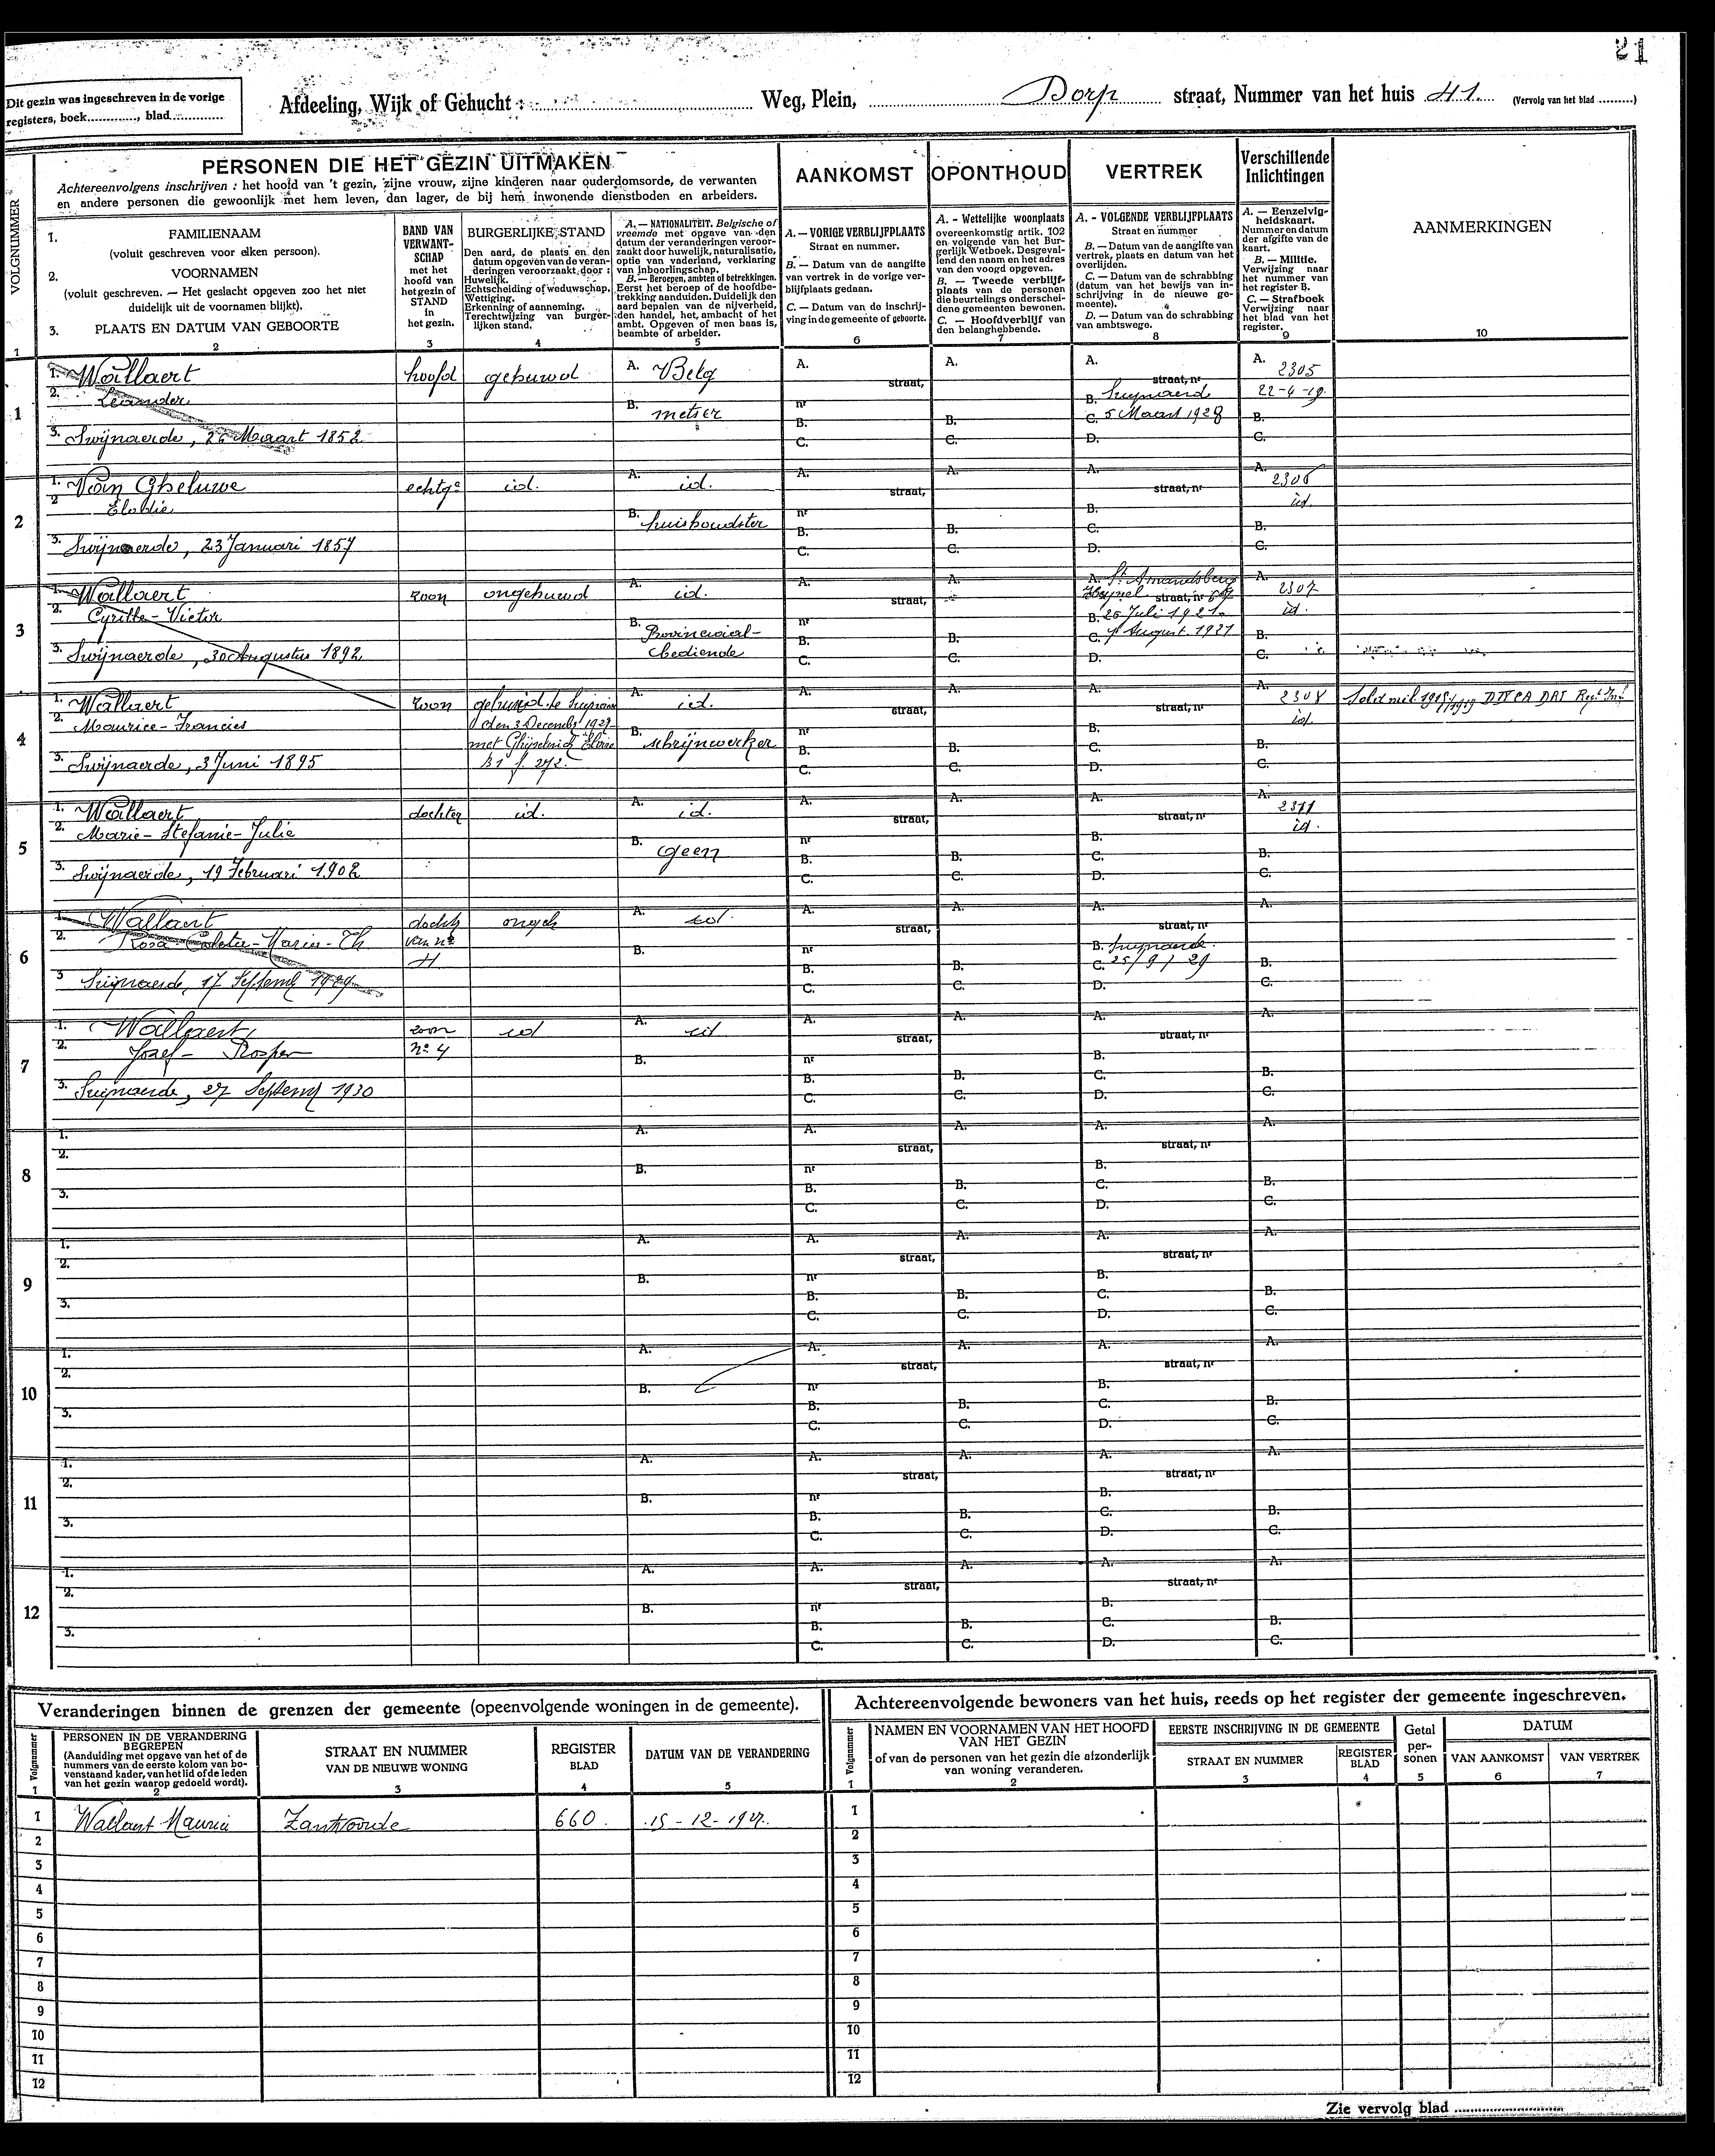 21
Dit gezin was ingeschreven in de vorige
registers, boek............, blad..............
Afdeeling, Wijk of Gehucht : .......... Weg, Plein, .......... Dorp ...... straat, Nummer van het huis 41. (Vervolg van het blad .........)
VOLGNUMMER
PERSONEN DIE HET GEZIN UITMAKEN
Achtereenvolgens inschrijven : het hoofd van 't gezin, zijne vrouw, zijne kinderen naar ouderdomsorde, de verwanten
en andere personen die gewoonlijk met hem leven, dan lager, de bij hem inwonende dienstboden en arbeiders.
AANKOMST
OPONTHOUD
VERTREK
Verschillende
Inlichtingen
AANMERKINGEN
1. FAMILIENAAM
(voluit geschreven voor elken persoon).
2. VOORNAMEN
(voluit geschreven. — Het geslacht opgeven zoo het niet
duidelijk uit de voornamen blijkt).
3. PLAATS EN DATUM VAN GEBOORTE
BAND VAN
VERWANT-
SCHAP
met het
hoofd van
het gezin of
STAND
in
het gezin.
BURGERLIJKE STAND
Den aard, de plaats en den
datum opgeven van de veran-
deringen veroorzaakt door :
Huwelijk.
Echtscheiding of weduwschap.
Wettiging.
Erkenning of aanneming.
Terechtwijzing van burger-
lijken stand.
A. — NATIONALITEIT. Belgische of
vreemde met opgave van den
datum der veranderingen veroor-
zaakt door huwelijk, naturalisatie,
optie van vaderland, verklaring
van inboorlingschap.
B. — Beroepen, ambten of betrekkingen.
Eerst het beroep of de hoofdbe-
trekking aanduiden. Duidelijk den
aard bepalen van de nijverheid,
den handel, het, ambacht of het
ambt. Opgeven of men baas is,
beambte of arbeider.
A. — VORIGE VERBLIJFPLAATS
Straat en nummer.
B. — Datum van de aangifte
van vertrek in de vorige ver-
blijfplaats gedaan.
C. — Datum van de inschrij-
ving in de gemeente of geboorte.
A. - Wettelijke woonplaats
overeenkomstig artik. 102
en volgende van het Bur-
gerlijk Wetboek. Desgeval-
lend den naam en het adres
van den voogd opgeven.
B. — Tweede verblijf-
plaats van de personen
die beurtelings onderschei-
dene gemeenten bewonen.
C. — Hoofdverblijf van
den belanghebbende.
A. - VOLGENDE VERBLIJFPLAATS
Straat en nummer
B. — Datum van de aangifte van
vertrek, plaats en datum van het
overlijden.
C. — Datum van de schrabbing
(datum van het bewijs van in-
schrijving in de nieuwe ge-
meente).
D. — Datum van de schrabbing
van ambtswege.
A. — Eenzelvig-
heidskaart.
Nummer en datum
der afgifte van de
kaart.
B. — Militie.
Verwijzing naar
het nummer van
het register B.
C. — Strafboek
Verwijzing naar
het blad van het
register.
1 2 3 4 5 6 7 8 9 10
1
1. Wallaert hoofd gehuwd A. Belg A. straat, A. A. straat, nr A. 2305
2. Leander B. metser nr B. 22-4-19.
3. Swijnaerde, 26 Maart 1852 B. C. B. C. C. 5 Maart 1928 D. B. C.
2
1. Van Gheluwe echtge id. A. id. A. straat, A. A. straat, nr A. 2306
2 Elodie B. huishoudster nr B. id.
3. Swijnaerde, 23 Januari 1857 B. C. B. C. C. D. B. C.
3
1. Wallaert zoon ongehuwd A. id. A. straat, A. A. St Amandsberg straat, nr A. 2307
2. Cyrille-Victor B. Provinciaal- nr B. 26 Juli 1921. id.
bediende
3. Swijnaerde, 30 Augustus 1892 B. C. B. C. C. August. 1921 D. B. C.
4
1. Wallaert zoon gehuwd te A. id. A. straat, A. A. straat, nr A. 2308
2. Maurice-Francies den 3 December 1927 B. schrijnwerker nr B. id.
met Eloise
B1 f. 272.
3. Swijnaerde, 3 Juni 1895 B. C. B. C. C. D. B. C.
5
1. Wallaert dochter id. A. id. A. straat, A. A. straat, nr A. 2311
2. Marie-Stefanie-Julie B. geen nr B. id.
3. Swijnaerde, 19 Februari 1902 B. C. B. C. C. D. B. C.
6
1. Wallaert docht ongeh A. id. A. straat, A. A. straat, nr A.
2. Rosa-Coletta-Maria-Th van nr B. nr B. Swijnaerde
4
3 Swijnaerde, 17 Septemb 1929 B. C. B. C. C. 25/9/29 D. B. C.
7
1. Wallaert zoon id A. id A. straat, A. A. straat, nr A.
2. Jozef- Prosper no 4 B. nr B.
3. Swijnaerde, 27 Septemb 1930 B. C. B. C. C. D. B. C.
8
1. A. A. straat, A. A. straat, nr A.
2. B. nr B.
3. B. C. B. C. C. D. B. C.
9
1. A. A. straat, A. A. straat, nr A.
2. B. nr B.
3. B. C. B. C. C. D. B. C.
10
1. A. A. straat, A. A. straat, nr A.
2. B. nr B.
3. B. C. B. C. C. D. B. C.
11
1. A. A. straat, A. A. straat, nr A.
2. B. nr B.
3. B. C. B. C. C. D. B. C.
12
1. A. A. straat, A. A. straat, nr A.
2. B. nr B.
3. B. C. B. C. C. D. B. C.
Veranderingen binnen de grenzen der gemeente (opeenvolgende woningen in de gemeente).
Volgnummer
PERSONEN IN DE VERANDERING
BEGREPEN
(Aanduiding met opgave van het of de
nummers van de eerste kolom van bo-
venstaand kader, van het lid of de leden
van het gezin waarop gedoeld wordt).
STRAAT EN NUMMER
VAN DE NIEUWE WONING
REGISTER
BLAD
DATUM VAN DE VERANDERING
1 2 3 4 5
1 Wallaert Maurice Zantvoorde 660. 15-12-1927.
2
3
4
5
6
7
8
9
10
11
12
Achtereenvolgende bewoners van het huis, reeds op het register der gemeente ingeschreven.
Volgnummer
NAMEN EN VOORNAMEN VAN HET HOOFD
VAN HET GEZIN
of van de personen van het gezin die afzonderlijk
van woning veranderen.
EERSTE INSCHRIJVING IN DE GEMEENTE
STRAAT EN NUMMER
REGISTER
BLAD
Getal
per-
sonen
DATUM
VAN AANKOMST
VAN VERTREK
1 2 3 4 5 6 7
1
2
3
4
5
6
7
8
9
10
11
12
Zie vervolg blad ..............................